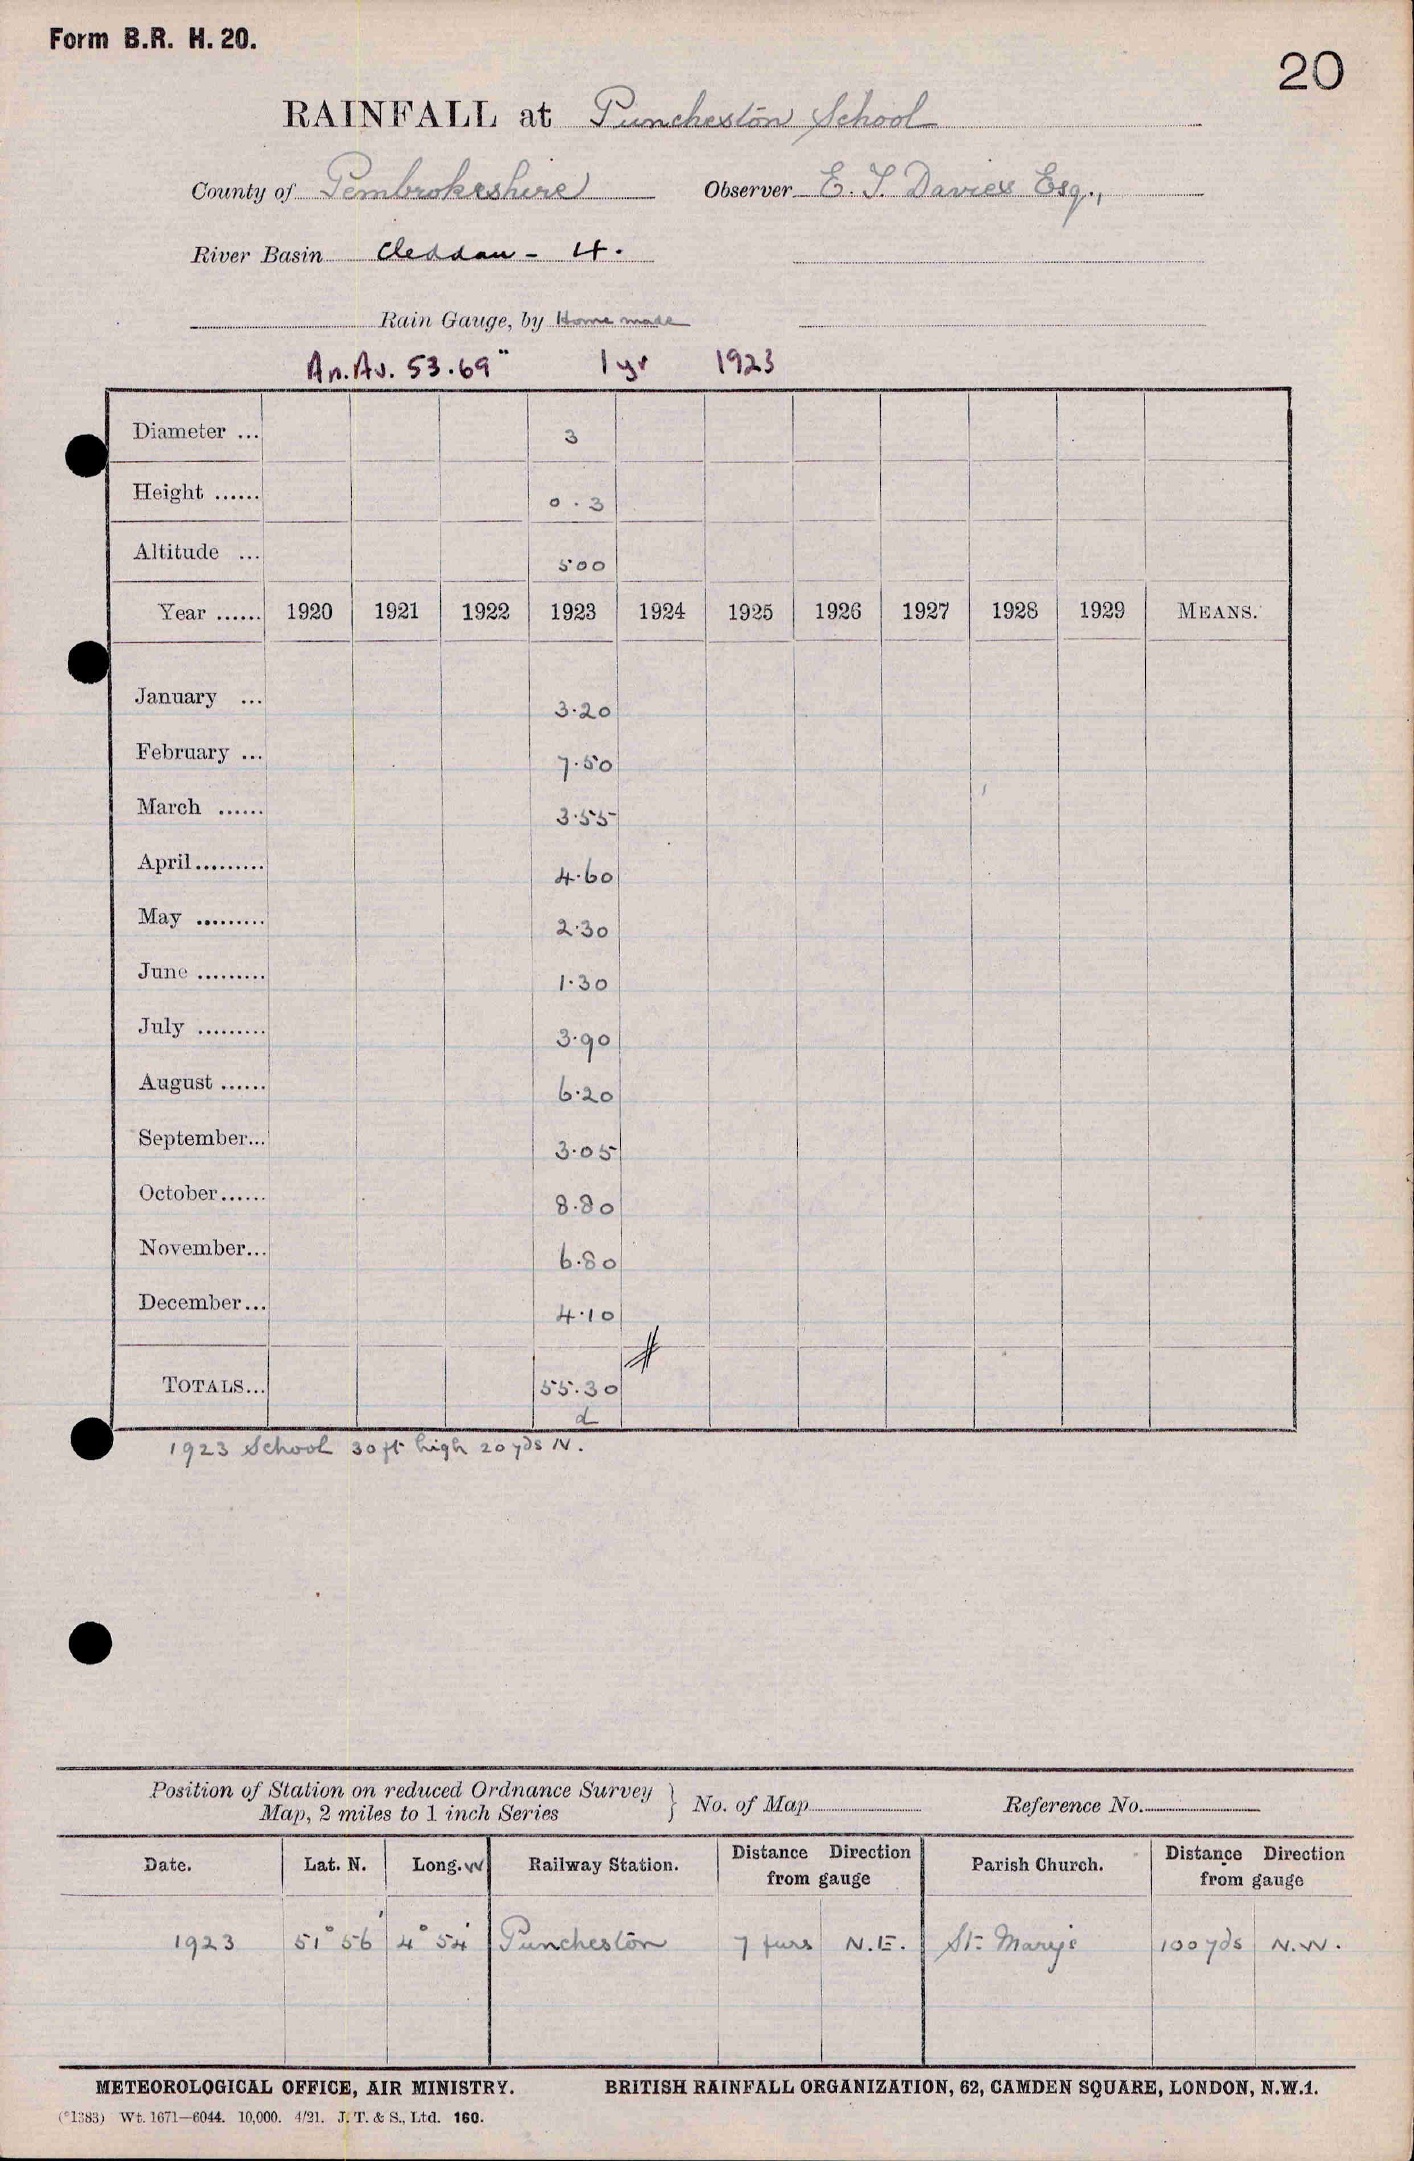 Form B.R. H. 20.
20
RAINFALL at Puncheston School
County of Pembrokeshire Observer E. T. Davies Esq.,
River Basin Cleddau - 4.
Rain Gauge, by Home made
An. Av. 53.69" 1 yr 1923
Diameter ... 3
Height ...... 0.3
Altitude ... 500
Year ...... 1920 1921 1922 1923 1924 1925 1926 1927 1928 1929 MEANS.
January ... 3.20
February ... 7.50
March ...... 3.55
April......... 4.60
May ......... 2.30
June ......... 1.30
July ......... 3.90
August ...... 6.20
September... 3.05
October...... 8.80
November... 6.80
December... 4.10
TOTALS... 55.30
d
1923 School 30ft high 20 yds N.
Position of Station on reduced Ordnance Survey Map, 2 miles to 1 inch Series } No. of Map Reference No.
Date. Lat. N. Long. W Railway Station. Distance Direction from gauge Parish Church. Distance Direction from gauge
1923 51° 56' 4° 54' Puncheston 7 furs N.E. St. Mary's 100 yds N.W.
METEOROLOGICAL OFFICE, AIR MINISTRY. BRITISH RAINFALL ORGANIZATION, 62, CAMDEN SQUARE, LONDON, N.W.1.
(*1383) Wt. 1671—6044. 10,000. 4/21. J. T. & S., Ltd. 160.